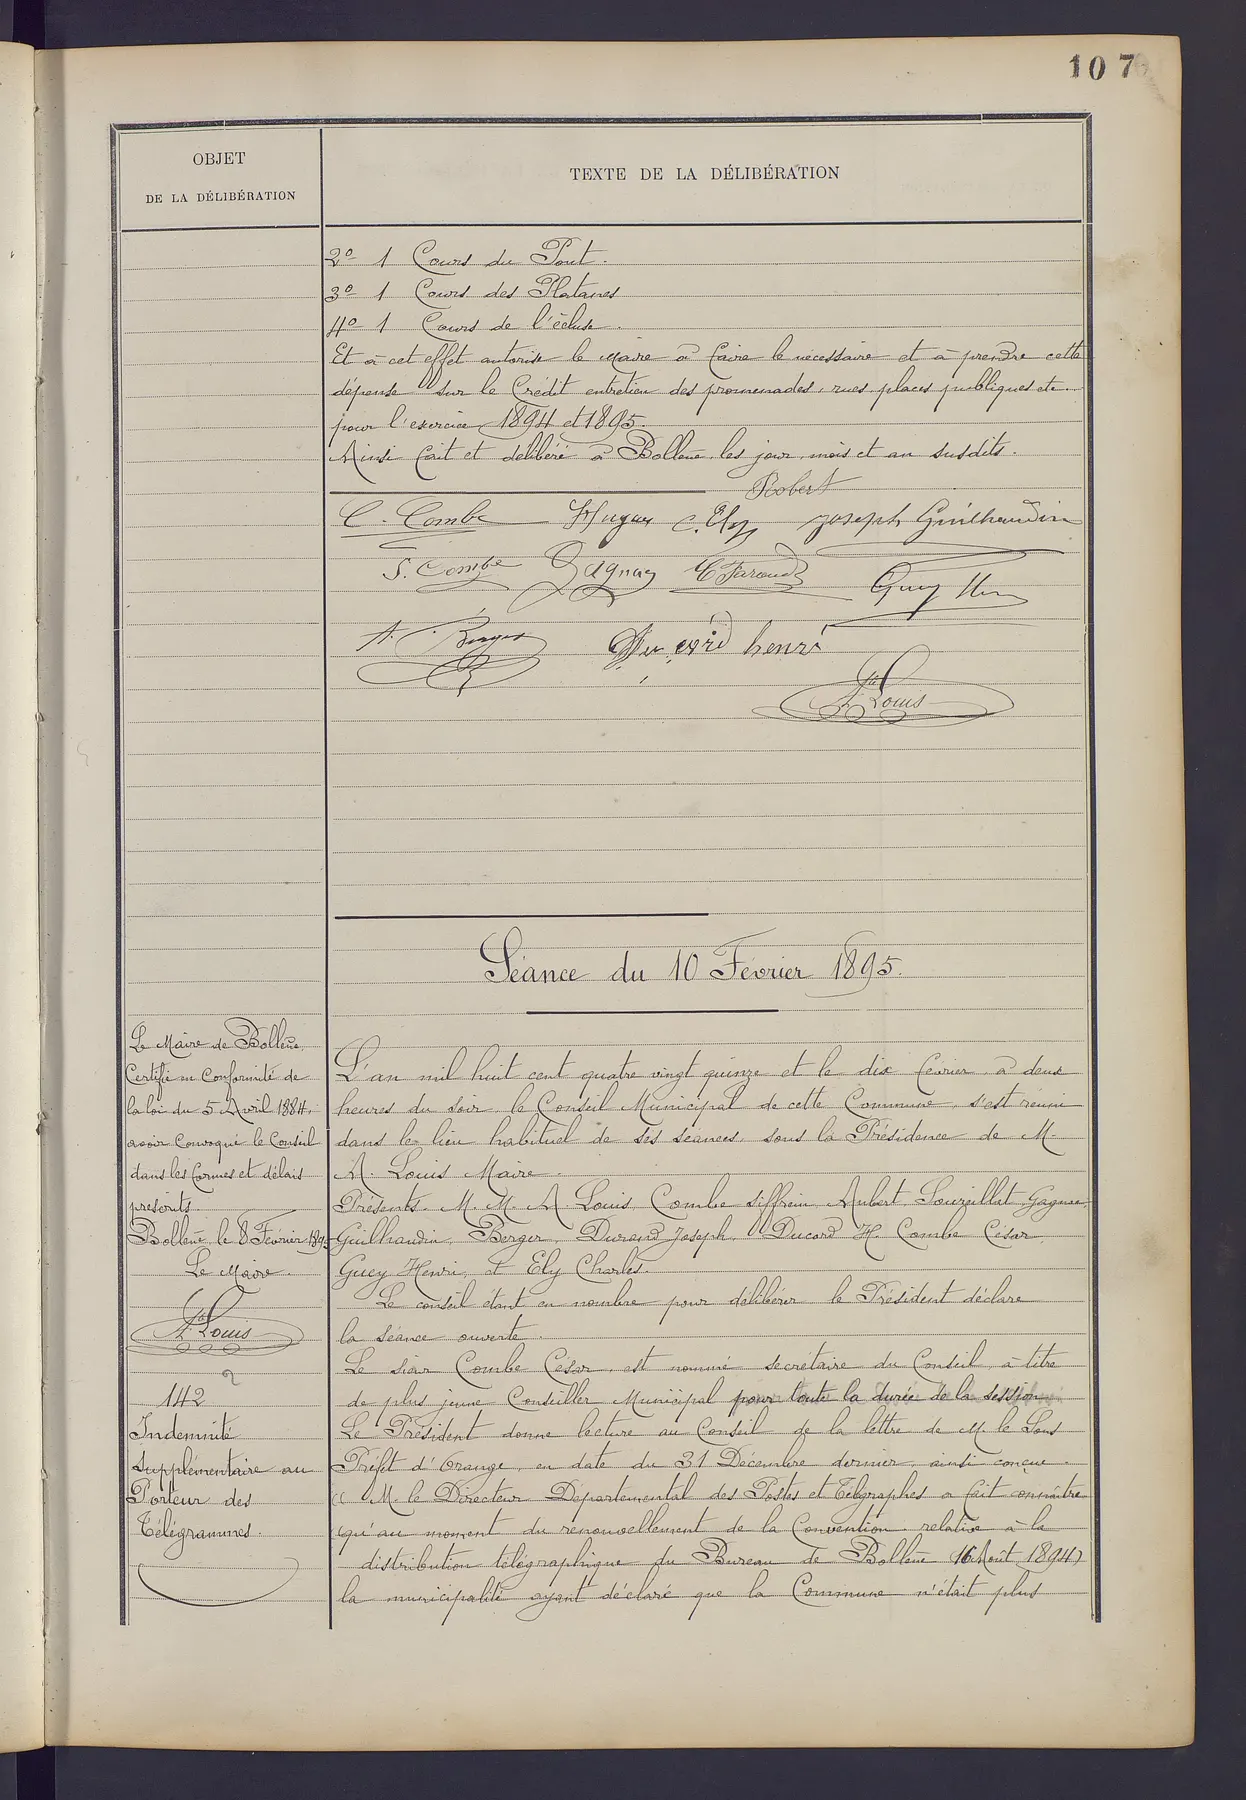 107
OBJET
DE LA DÉLIBÉRATION
TEXTE DE LA DÉLIBÉRATION
2º 1 Cours du Pont.
3º 1 Cours des Platanes
4º 1 Cours de l'écluse.
Et à cet effet autorise le Maire à faire le nécessaire et à prendre cette
dépense sur le Crédit entretien des promenades, rues, places publiques etc.
pour l'exercice 1894 et 1895.
Ainsi fait et délibéré à Bollène, les jour, mois et an susdits.
Robert
C. Combe Hugues C. Ely Joseph Guilhaudin
S. Combe Gagnay Guey Hri
A. Berger Ducord henri
A. Louis
Séance du 10 Février 1895.
Le Maire de Bollène,
Certifie en Conformité de
la loi du 5 Avril 1884,
avoir Convoqué le Conseil
dans les formes et délais
prescrits.
Bollène, le 8 Février 1895
Le Maire.
A. Louis
142
Indemnité
Supplémentaire au
Porteur des
Télégrammes.
L'an mil huit cent quatre vingt quinze et le dix février, à deux
heures du soir, le Conseil Municipal de cette Commune, s'est réuni
dans le lieu habituel de ses séances, sous la Présidence de M.
A. Louis Maire.
Présents. M. M. A. Louis, Combe Siffrein, Aubert, Souzeillat, Gagnay,
Guilhaudin, Berger, Durand Joseph, Ducord H. Combe César,
Guey Henri, et Ely Charles.
Le conseil étant en nombre pour délibérer le Président déclare
la séance ouverte.
Le sieur Combe César, est nommé secrétaire du Conseil, à titre
de plus jeune Conseiller Municipal pour toute la durée de la session
Le Président donne lecture au Conseil de la lettre de M. le Sous
Préfet d'Orange, en date du 31 Décembre dernier, ainsi conçue.
« M. le Directeur Départemental des Postes et Télégraphes a fait connaître
qu'au moment du renouvellement de la Convention relative à la
distribution télégraphique du Bureau de Bollène (16 Août 1894)
la municipalité ayant déclaré que la Commune n'était plus